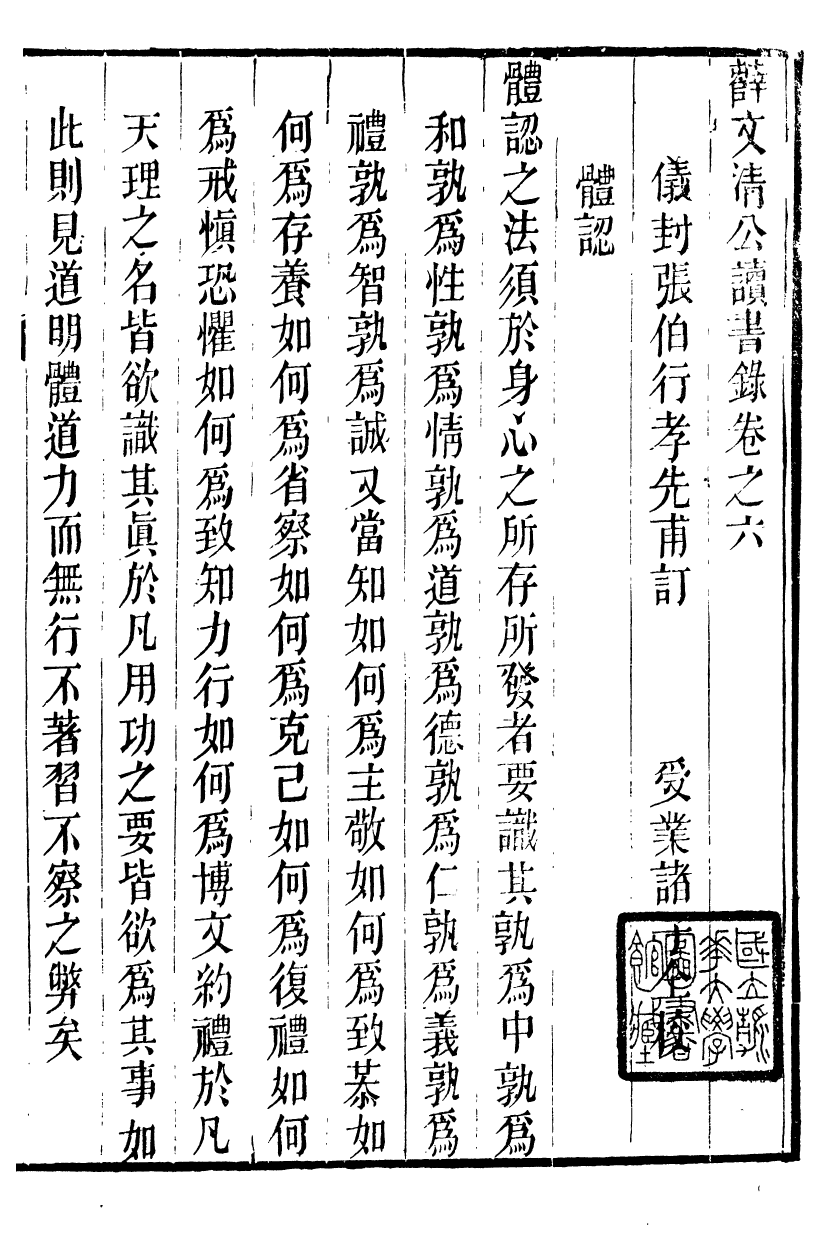 薛文清公讀書錄卷之六
儀封張伯行孝先甫訂 受業諸子仝校
國立清華大學圖書館藏
體認
體認之法須於身心之所存所發者要識其孰爲中孰爲
和孰爲性孰爲情孰爲道孰爲德孰爲仁孰爲義孰爲
禮孰爲智孰爲誠又當知如何爲主敬如何爲致恭如
何爲存養如何爲省察如何爲克己如何爲復禮如何
爲戒愼恐懼如何爲致知力行如何爲博文約禮於凡
天理之名皆欲識其眞於凡用功之要皆欲爲其事如
此則見道明體道力而無行不著習不察之弊矣